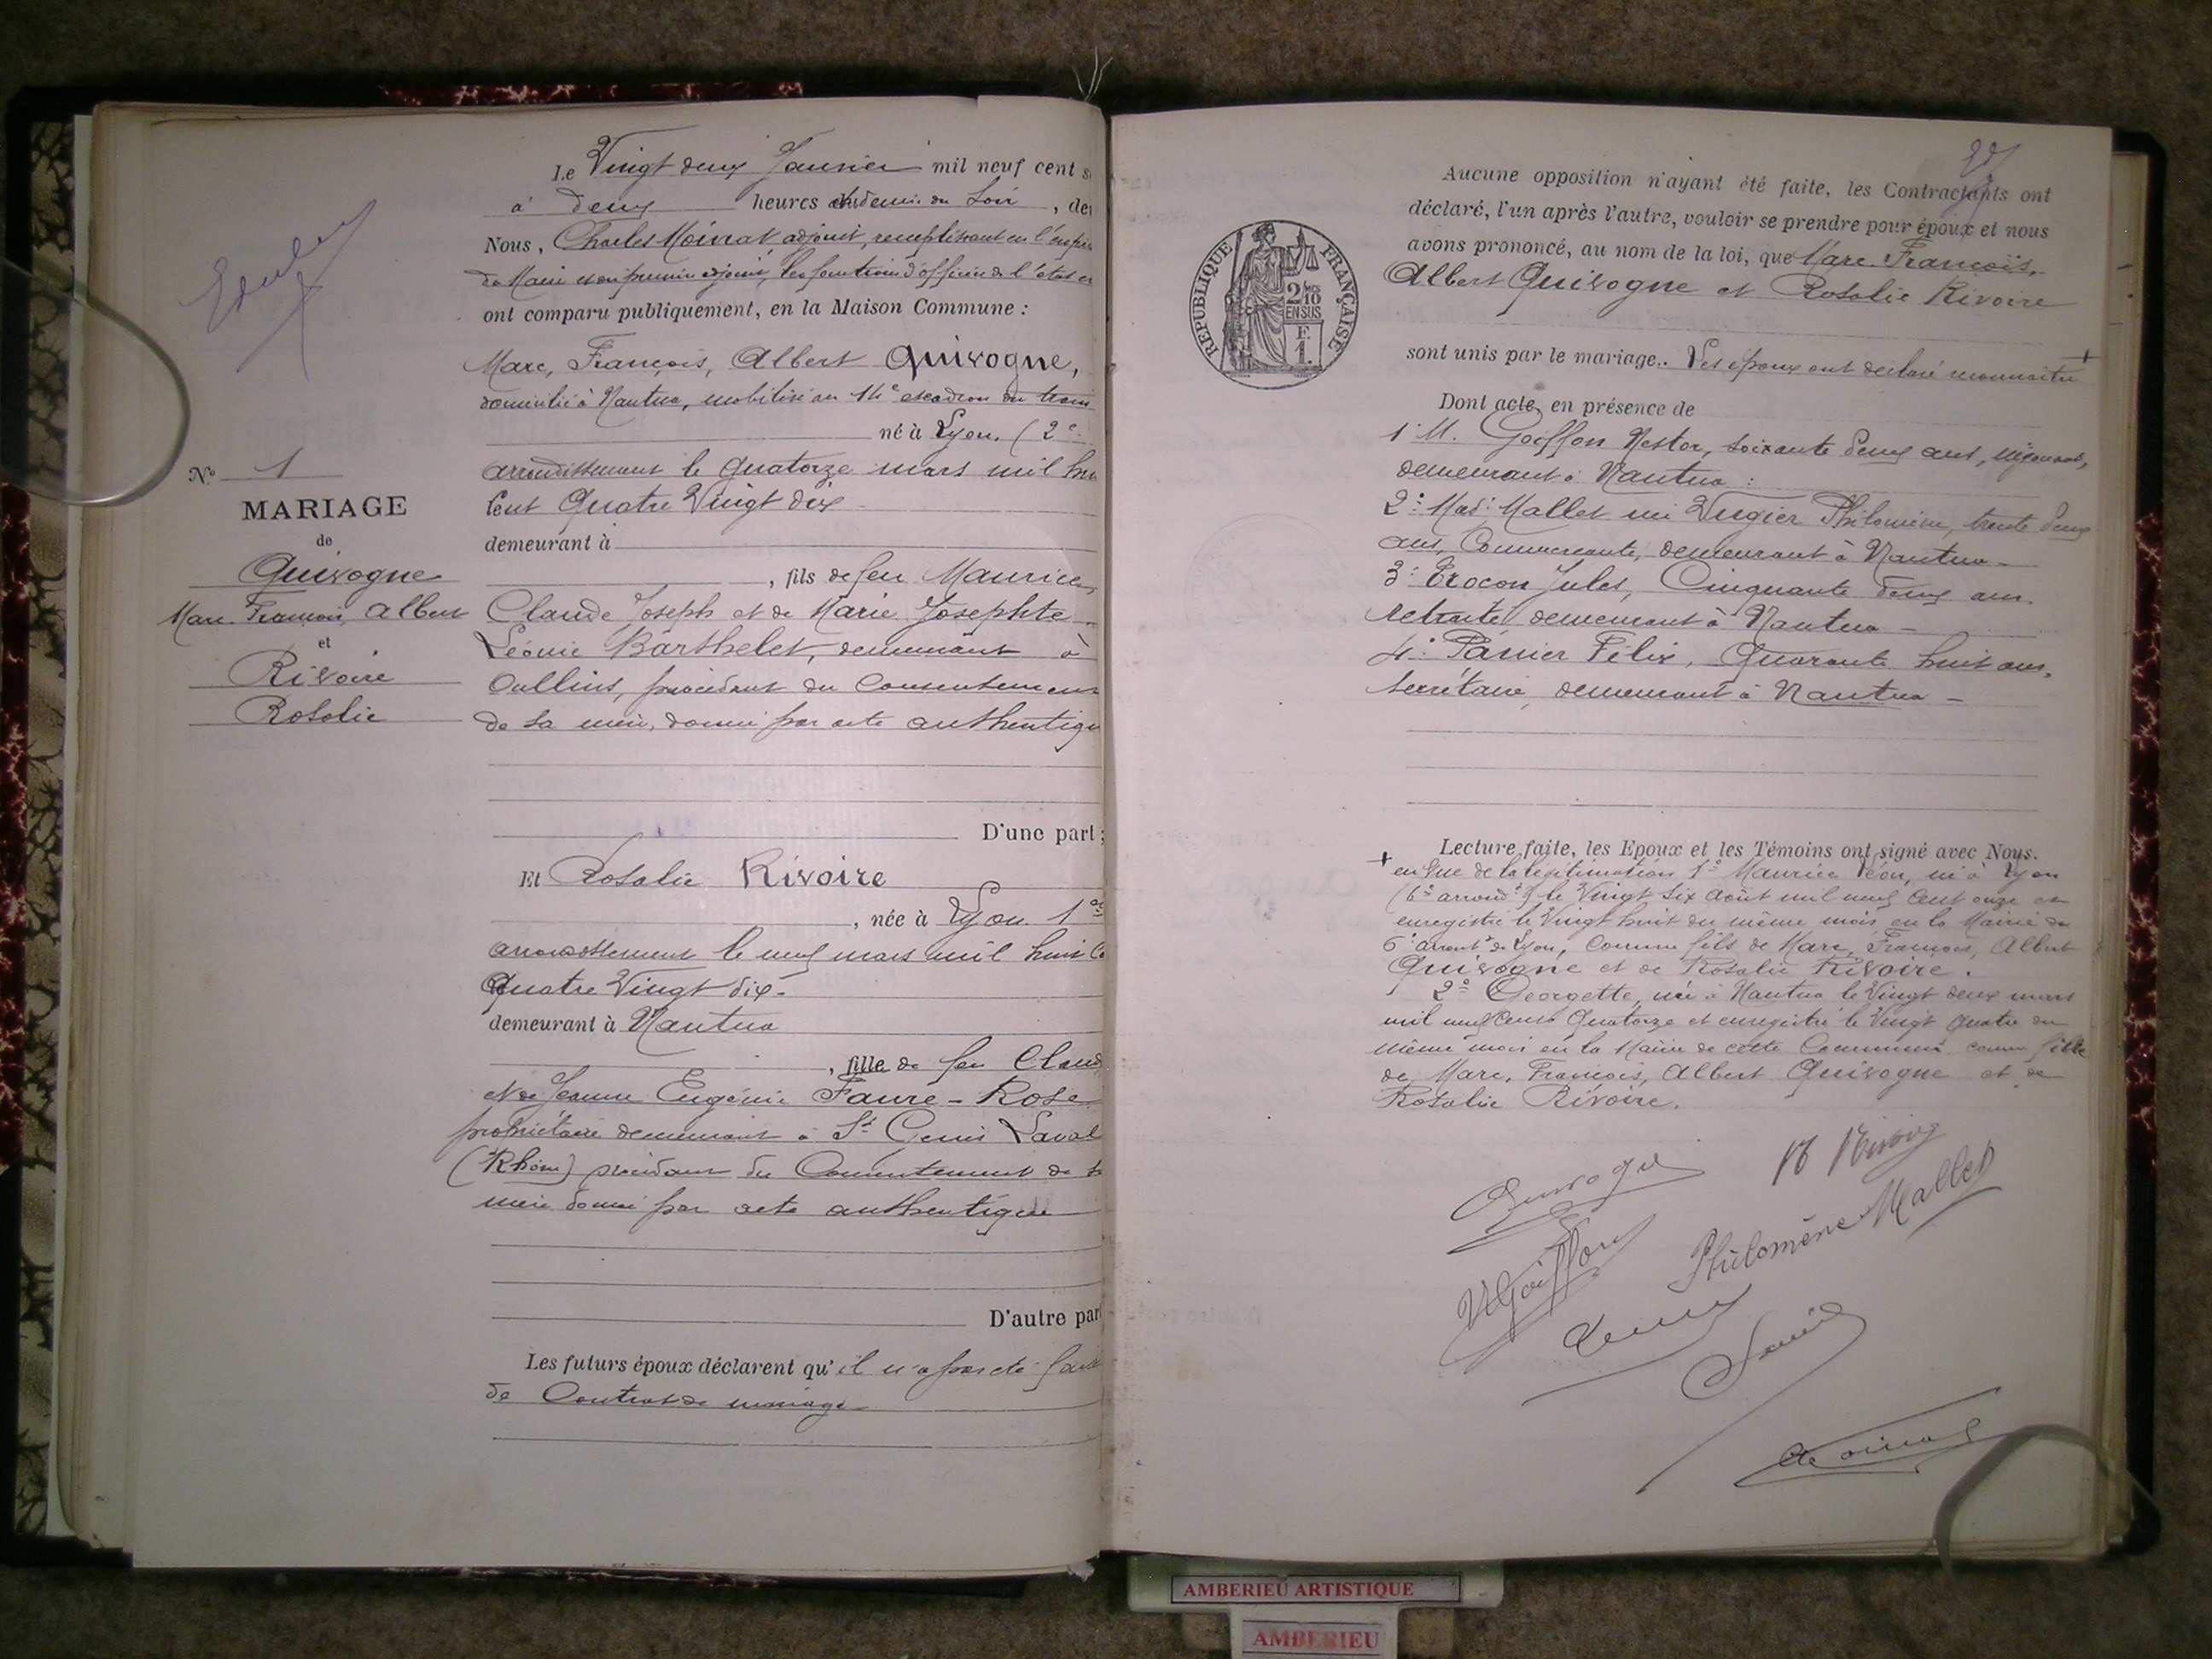 Le Vingt deux Janvier mil neuf cent s
à deux heures et demie du Soir, de
Nous, Charles Moinat adjoint, remplissant en l'empê
de Maire et du premier adjoint, les fonctions d'officier de l'état ci
ont comparu publiquement, en la Maison Commune :
Marc, François, Albert Quivogne,
domicilié à Nantua, mobilisé au 14e escadron du train
né à Lyon. (2e
arrondissement le quatorze mars mil hui
cent Quatre Vingt dix
demeurant à
, fils de feu Maurice
Claude Joseph et de Marie Josephte
Léonie Barthelet, demeurant à
Oullins, procédant du Consentement
de sa mère, donné par acte authentiqu
D'une part ;
Et Rosalie Rivoire
, née à Lyon 1er
arrondissement le neuf mars mil huit c
Quatre Vingt dix -
demeurant à Nantua
, fille de feu Claud
et de Jeanne Eugénie Faure - Rose
propriétaire demeurant à St Genis Laval
(Rhône) procédant du Consentement de s
mère donné par acte authentique
D'autre par
Les futurs époux déclarent qu'il n'a pas été fait
de Contrat de mariage
No 1
MARIAGE
de
Quivogne
Marc François, Albert
et
Rivoire
Rosalie
REPUBLIQUE FRANÇAISE
2/10
EN SUS
F.
1.
Aucune opposition n'ayant été faite, les Contractants ont
déclaré, l'un après l'autre, vouloir se prendre pour époux et nous
avons prononcé, au nom de la loi, que Marc. François,
Albert Quivogne et Rosalie Rivoire
sont unis par le mariage.. Les époux ont déclaré reconnaitre +
Dont acte, en présence de
1° M. Goiffon Nestor, soixante deux ans,
demeurant à Nantua :
2° Mad: Mallet née Vugier Philomène, trente deux
ans, Commercante, demeurant à Nantua -
3° Erocon Jules, Cinquante deux ans.
retraité demeurant à Nantua -
4° Panier Félix, Quarante huit ans,
secrétaire, demeurant à Nantua -
Lecture faite, les Epoux et les Témoins ont signé avec Nous.
+ en vue de la légitimation 1° Maurice Léon, né à Lyon
(6e arrondt) le Vingt Six Août mil neuf cent onze et
enregistré le Vingt huit du même mois en la Mairie du
6e arront de Lyon, comme fils de Marc, François, Albert
Quivogne et de Rosalie Rivoire.
2° Georgette, née à Nantua le Vingt deux mars
mil neuf cent Quatorze et enregistré le Vingt quatre du
même mois en la Mairie de cette Commune comme fille
de Marc, François, Albert Quivogne et de
Rosalie Rivoire.
Quivogne
R Rivoire
N Goiffon
Philomène Mallet
AMBERIEU ARTISTIQUE
AMBERIEU